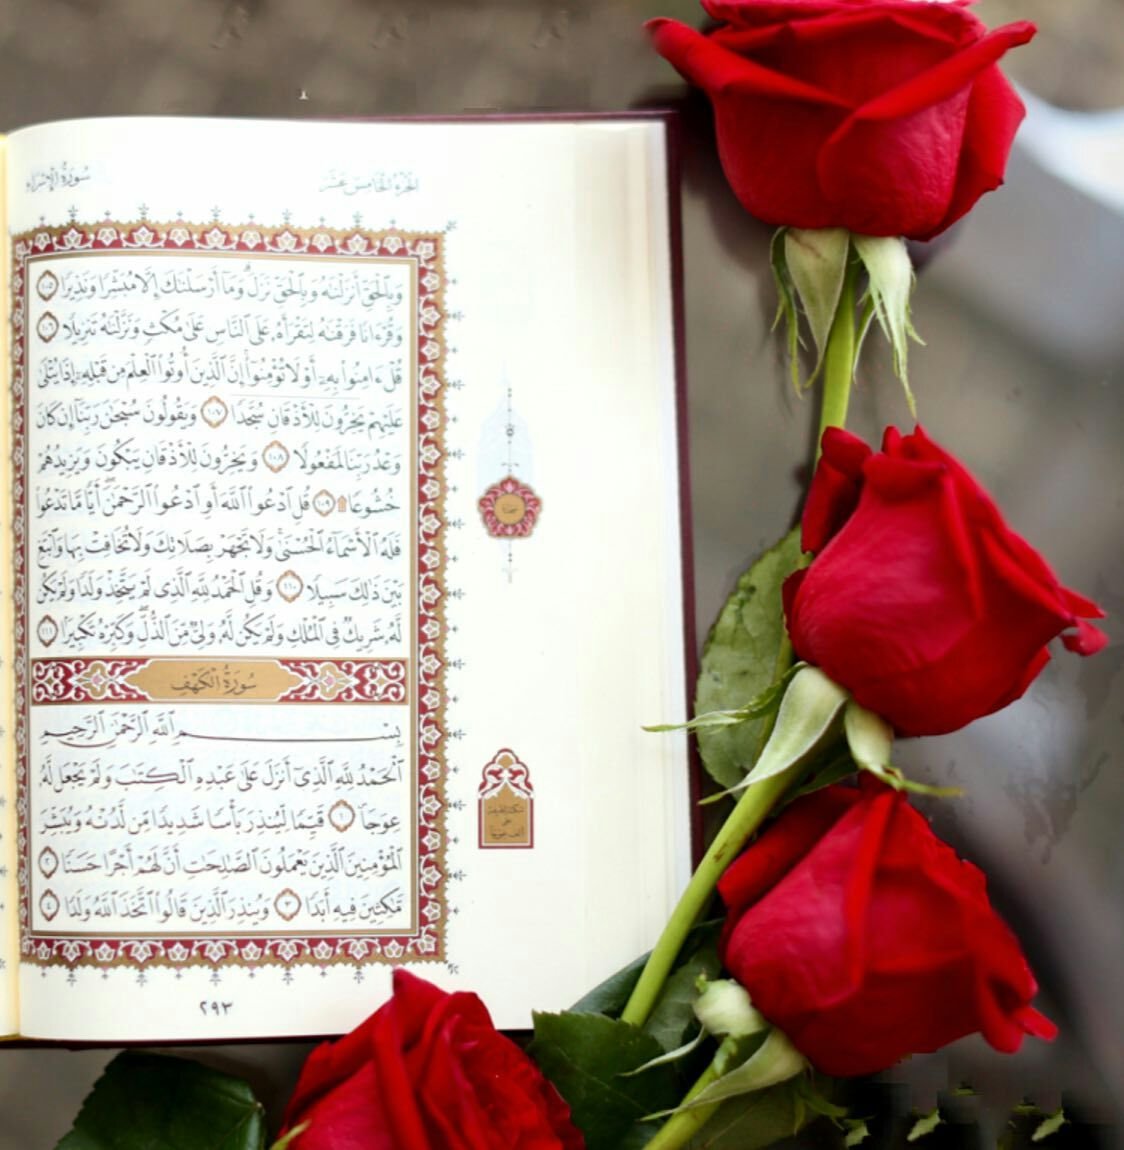 سُورَةُ الإِسْرَاء
الجُزْءُ الخَامِسَ عَشَرَ
وَبِٱلْحَقِّ أَنزَلْنَٰهُ وَبِٱلْحَقِّ نَزَلَ ۗ وَمَآ أَرْسَلْنَٰكَ إِلَّا مُبَشِّرًا وَنَذِيرًا ١٠٥
وَقُرْءَانًا فَرَقْنَٰهُ لِتَقْرَأَهُۥ عَلَى ٱلنَّاسِ عَلَىٰ مُكْثٍ وَنَزَّلْنَٰهُ تَنزِيلًا ١٠٦
قُلْ ءَامِنُوا۟ بِهِۦٓ أَوْ لَا تُؤْمِنُوٓا۟ ۚ إِنَّ ٱلَّذِينَ أُوتُوا۟ ٱلْعِلْمَ مِن قَبْلِهِۦٓ إِذَا يُتْلَىٰ
عَلَيْهِمْ يَخِرُّونَ لِلْأَذْقَانِ سُجَّدًا ١٠٧ وَيَقُولُونَ سُبْحَٰنَ رَبِّنَآ إِن كَانَ
وَعْدُ رَبِّنَا لَمَفْعُولًا ١٠٨ وَيَخِرُّونَ لِلْأَذْقَانِ يَبْكُونَ وَيَزِيدُهُمْ
خُشُوعًا ۩ ١٠٩ قُلِ ٱدْعُوا۟ ٱللَّهَ أَوِ ٱدْعُوا۟ ٱلرَّحْمَٰنَ ۖ أَيًّا مَّا تَدْعُوا۟
فَلَهُ ٱلْأَسْمَآءُ ٱلْحُسْنَىٰ ۚ وَلَا تَجْهَرْ بِصَلَاتِكَ وَلَا تُخَافِتْ بِهَا وَٱبْتَغِ
بَيْنَ ذَٰلِكَ سَبِيلًا ١١٠ وَقُلِ ٱلْحَمْدُ لِلَّهِ ٱلَّذِى لَمْ يَتَّخِذْ وَلَدًا وَلَمْ يَكُن
لَّهُۥ شَرِيكٌ فِى ٱلْمُلْكِ وَلَمْ يَكُن لَّهُۥ وَلِىٌّ مِّنَ ٱلذُّلِّ ۖ وَكَبِّرْهُ تَكْبِيرًۢا ١١١
سُورَةُ الكَهْفِ
بِسْمِ ٱللَّهِ ٱلرَّحْمَٰنِ ٱلرَّحِيمِ
ٱلْحَمْدُ لِلَّهِ ٱلَّذِىٓ أَنزَلَ عَلَىٰ عَبْدِهِ ٱلْكِتَٰبَ وَلَمْ يَجْعَل لَّهُۥ
عِوَجَا ۜ ١ قَيِّمًا لِّيُنذِرَ بَأْسًا شَدِيدًا مِّن لَّدُنْهُ وَيُبَشِّرَ
ٱلْمُؤْمِنِينَ ٱلَّذِينَ يَعْمَلُونَ ٱلصَّٰلِحَٰتِ أَنَّ لَهُمْ أَجْرًا حَسَنًا ٢
مَّٰكِثِينَ فِيهِ أَبَدًا ٣ وَيُنذِرَ ٱلَّذِينَ قَالُوا۟ ٱتَّخَذَ ٱللَّهُ وَلَدًا ٤
سجدة
٢٩٣